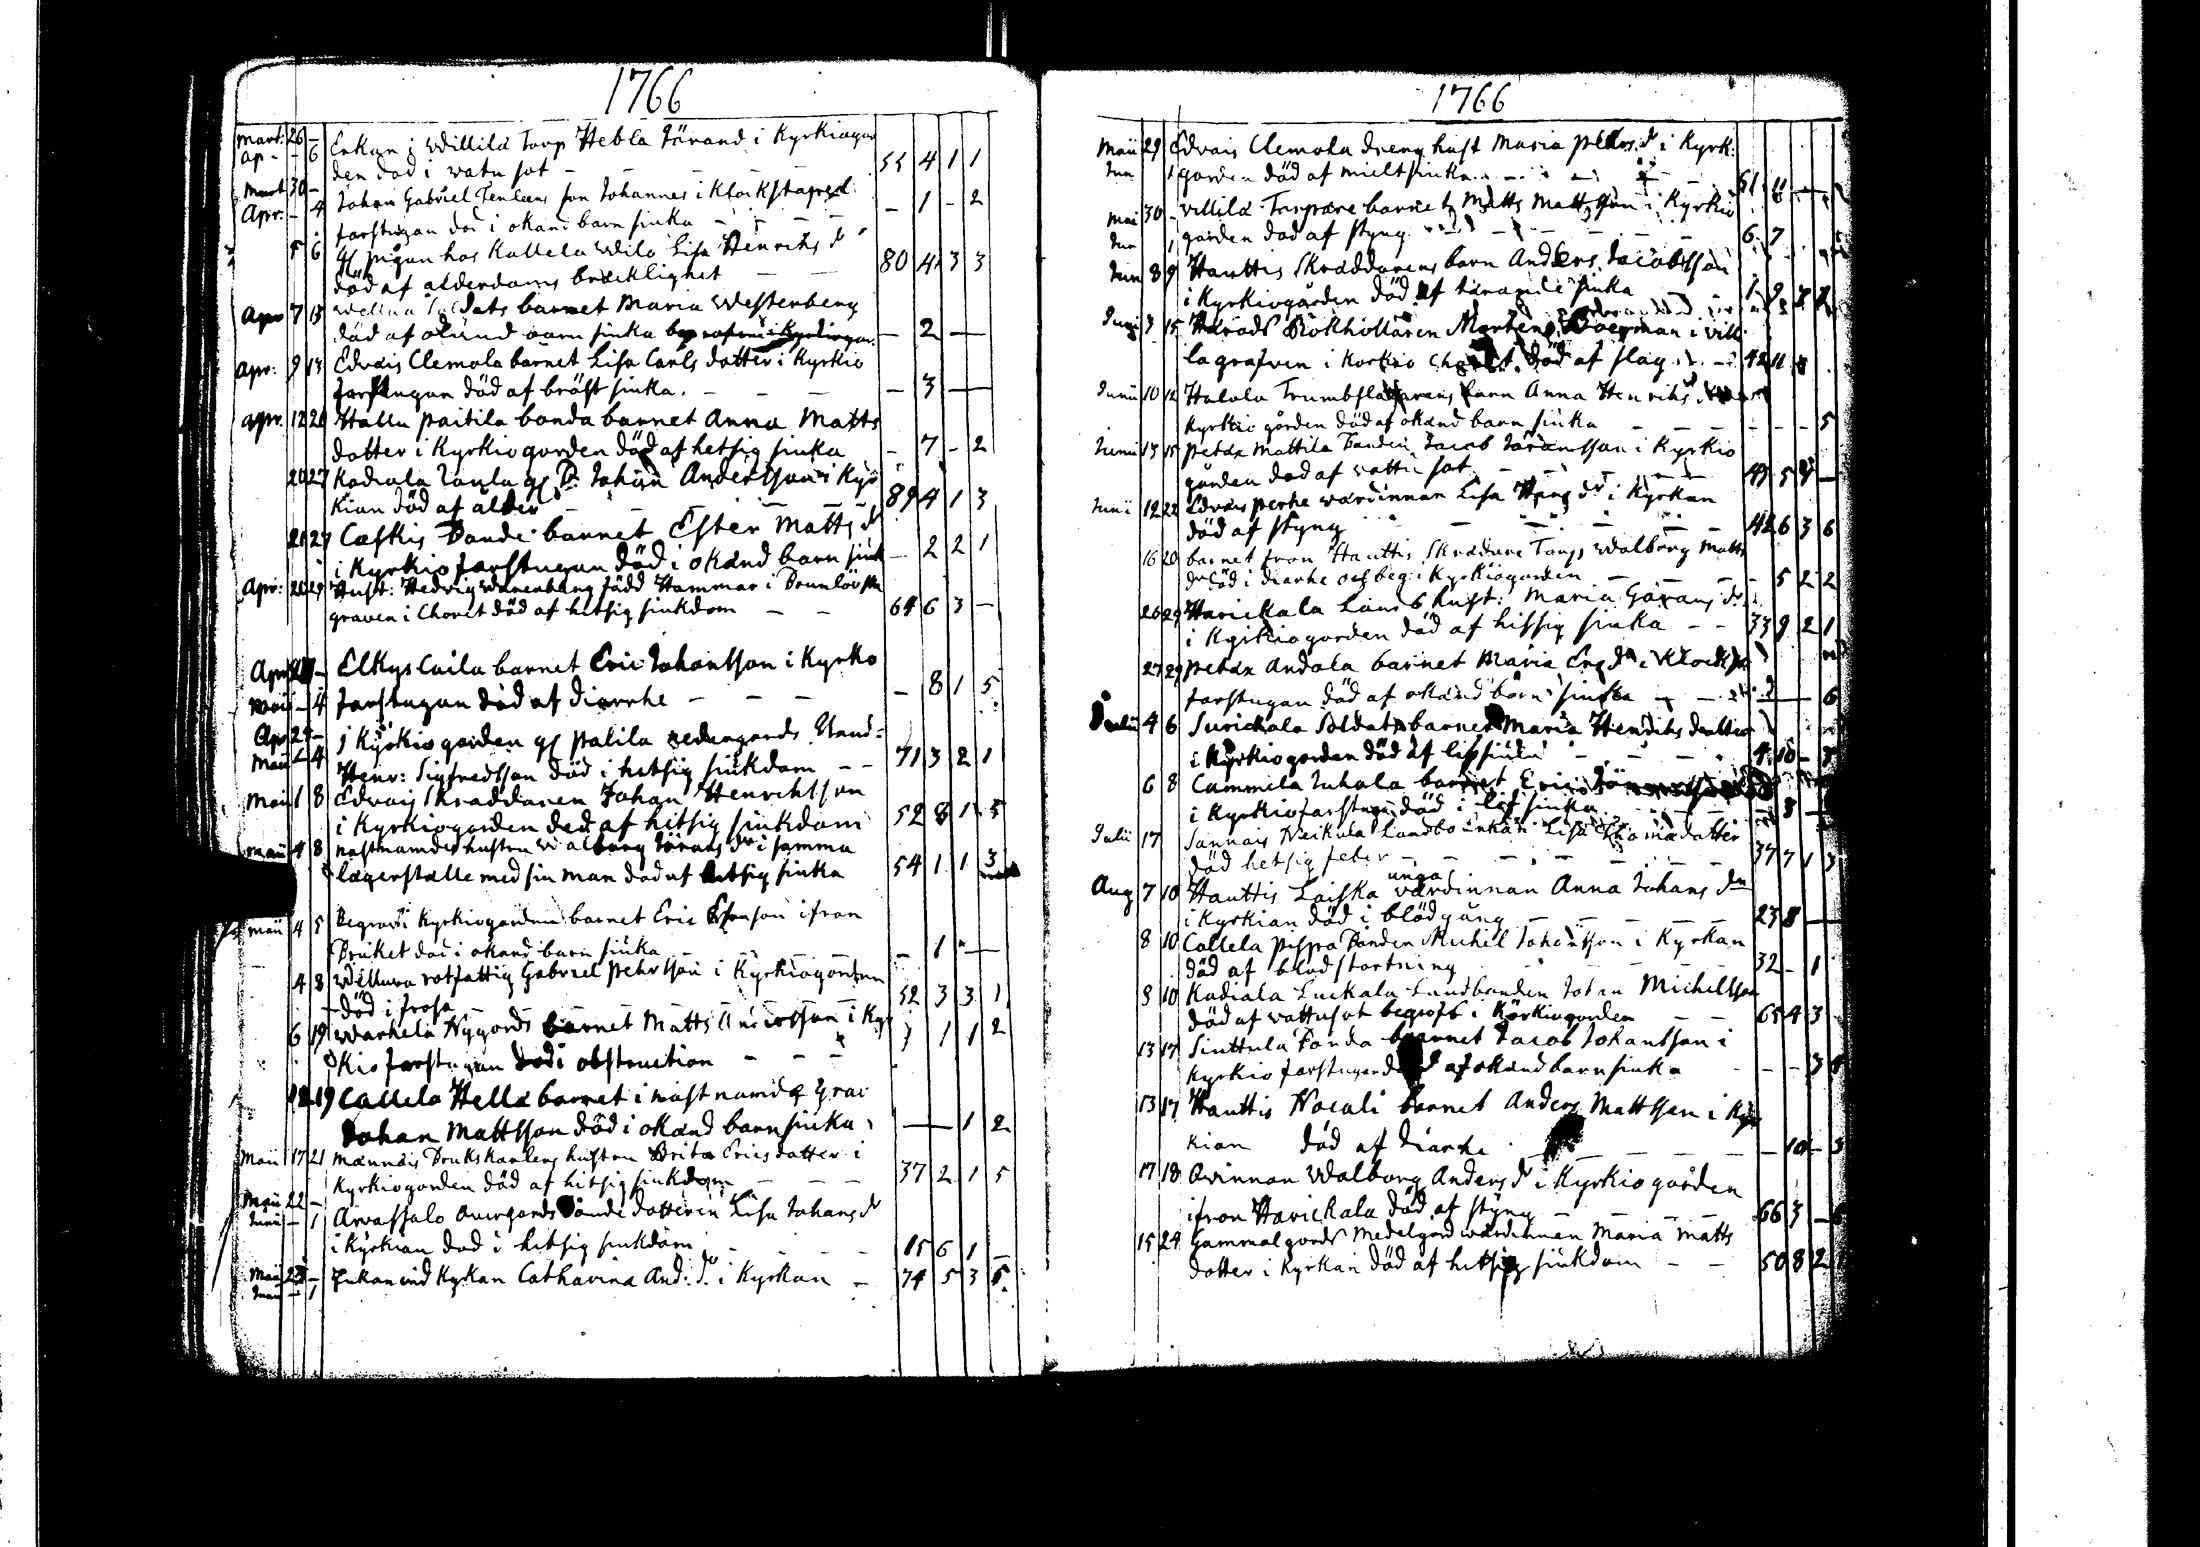 1766
Mart: 26 - Enkan i Willilä Torp Hebla Jörand i Kyrkiogår
Ap - - 6 den död i watu sot - - 55 4 1 1
Mart 30 - Johan Gabriel son Johannes i Klockstapel
Apr. - 4 farstugan död i okänd barn siuka - - - 1 - 2
5 6 gl pigan hos Kallela Lisa Henriks dr
död af ålderdoms bräcklighet - - 80 4 3 3
Apr 7 13 Soldats barnet Maria Westenberg
död af okänd barn siuka - 2 -
Apr: 9 13 Edvais Clemola barnet Lisa Carls dotter i Kyrkio
farstugan död af bröst siuka. - - - - 3 -
Apr. 12 20 Hallu paitila bonda barnet Anna Matts
dotter i Kyrkiogorden död af hetsig siuka - 7 - 2
20 27 Kadiala gl Johan Andersson i Kyr
kian död af ålder - - - 89 4 1 3
21 27 Caskis Bonde barnet Ester Matts dr
i Kyrkiofarstugan död i okänd barn siuk - 2 2 1
Apr: 26 29 Hust: Hedvig född Hammar i
graven i Choret död af hitsig siukdom - - 64 6 3 -
Apr - Elkys Caila barnet Eric Johansson i Kyrko
Maii - 4 farstugan död af diarrhe - - - - 8 1 5
Apr 24 - i Kyrkio gorden gl palila nedangards
Maii - 4 Henr: Sigfredsson död i hetsig siukdom - - 71 3 2 1
Maii 1 8 Edvais Skräddaren Johan Henrichsson
i Kyrkiogorden död af hitsig siukdom 52 8 1 5
Maii 4 8 nästnämdes hustru Walborg Jörans dr i samma
lägerställe med sin man död af hitsig siuka 54 1 1 3
Maii 4 5 Begrovs i Kyrkiogorden barnet Eric ifrån
Bruket död i okänd barn siuka - 1 - -
4 8 rotfattig Gabriel Pehrsson i Kyrkiogorden
död i frosa - 52 3 3 1
6 19 Warhela Nygords barnet Matts Andersson i Kyr
kio farstugan död i obstruction - - - 1 1 2
12 19 Callela Hella barnet i nästnämde
Johan Mattsson död i okänd barn siuka - 1 2
Maii 17 21 Männäis Brukskarlens hustru Brita Erics dotter i
Kyrkiogorden död af hitsig siukdom - - 37 2 1 5
Maii 22 - Arvassalo Övergords Bonde dotteren Lisa Johans dr
Junii - 1 i Kyrkian död i hetsig siukdom - - - 15 6 1 -
Maii 23 - Enkan vid Kykan Catharina And: dr i Kyrkan - 74 5 3 5
Junii - 1
1766
Maii 29 Edvais Clemola dreng hust Maria Pehrs dr i Kyrk:
Jun 1 gården död af mieltsiuka - - 51 11 -
Mai 30 - Villilä Torpare barnet Matts Mattsson i Kyrkio
Jun 1 gården död af styng - - - 6 7
Jun 8 9 Hauttis Skräddarens barn Anders Jacobsson
i Kyrkiogården död af tärande siuka 1 9 2 2
Junii 3 15 Härads Bokhållaren Mortens i Vill
la grafven i Korkio Choret död af slag - - 42 11 8
Junii 10 12 Halola Trumbslagarens barn Anna Henriks
Kyrkio gården död af okänd barn siuka - - - - 5
Junii 13 15 petäx Mattila Bonden Jacob Jöransson i Kyrkio
gården död af vattu sot - - - 49 5 -
Junii 12 22 Edvais perhe wärdinnan Lisa Hans dr i Kyrkan
död af styng - - - 42 6 3 6
16 20 barnet från Hauttis Skräddare Torp Walborg Matts
dr död i diarhe och beg: i Kyrkiogården - - - 5 2 2
26 29 Harickala hust: Maria Görans dr
i Kyrkiogorden död af hissig siuka - - 33 9 2 1
27 29 petäx Andola barnet Maria Er dr i Klockst
farstugan död af okänd barn siuka - - 2 - 6
Julii 4 6 Surickala Soldats barnet Maria Henrichs dotter
i Kyrkiogorden död af 4 10 - 3
6 8 Cummila Juhola barnet Eric
i Kyrkiofarstugu död i siuka - - 8
Julii 17 Sannais Neikula Landbo Enkan Lisa Thomædotter
död hetsig feber - - - - 37 7 1 3
Aug 7 10 Hauttis Laiska unga värdinnan Anna Johans dr
i Kyrkian död i blodgång - - - - 23 8 -
8 10 Callela Pispa Bonden Michel Johansson i Kyrkan
död af blodstörtning - - - 32 - 1
8 10 Kadiala Luckala Landbonden Johan Michelsson
död af vattusot begrofs i Kyrkiogorden - - 65 4 3
13 17 Siuttila Bonda barnet Jacob Johansson i
Kyrkio farstugan död af okänd barn siuka - - - 3
13 17 Hauttis Nocali barnet Anders Mattsson i Kyr
kian död af diarhe - - - - 10 - 3
17 18 Qvinnan Walborg Anders dr i Kyrkiogården
ifrån Harickala död af styng - - - 66 3 - 6
15 24 Gammalgords Medelgord wärdinnan Maria Matts
dotter i Kyrkan död af hetsig siukdom - - 50 8 2 1